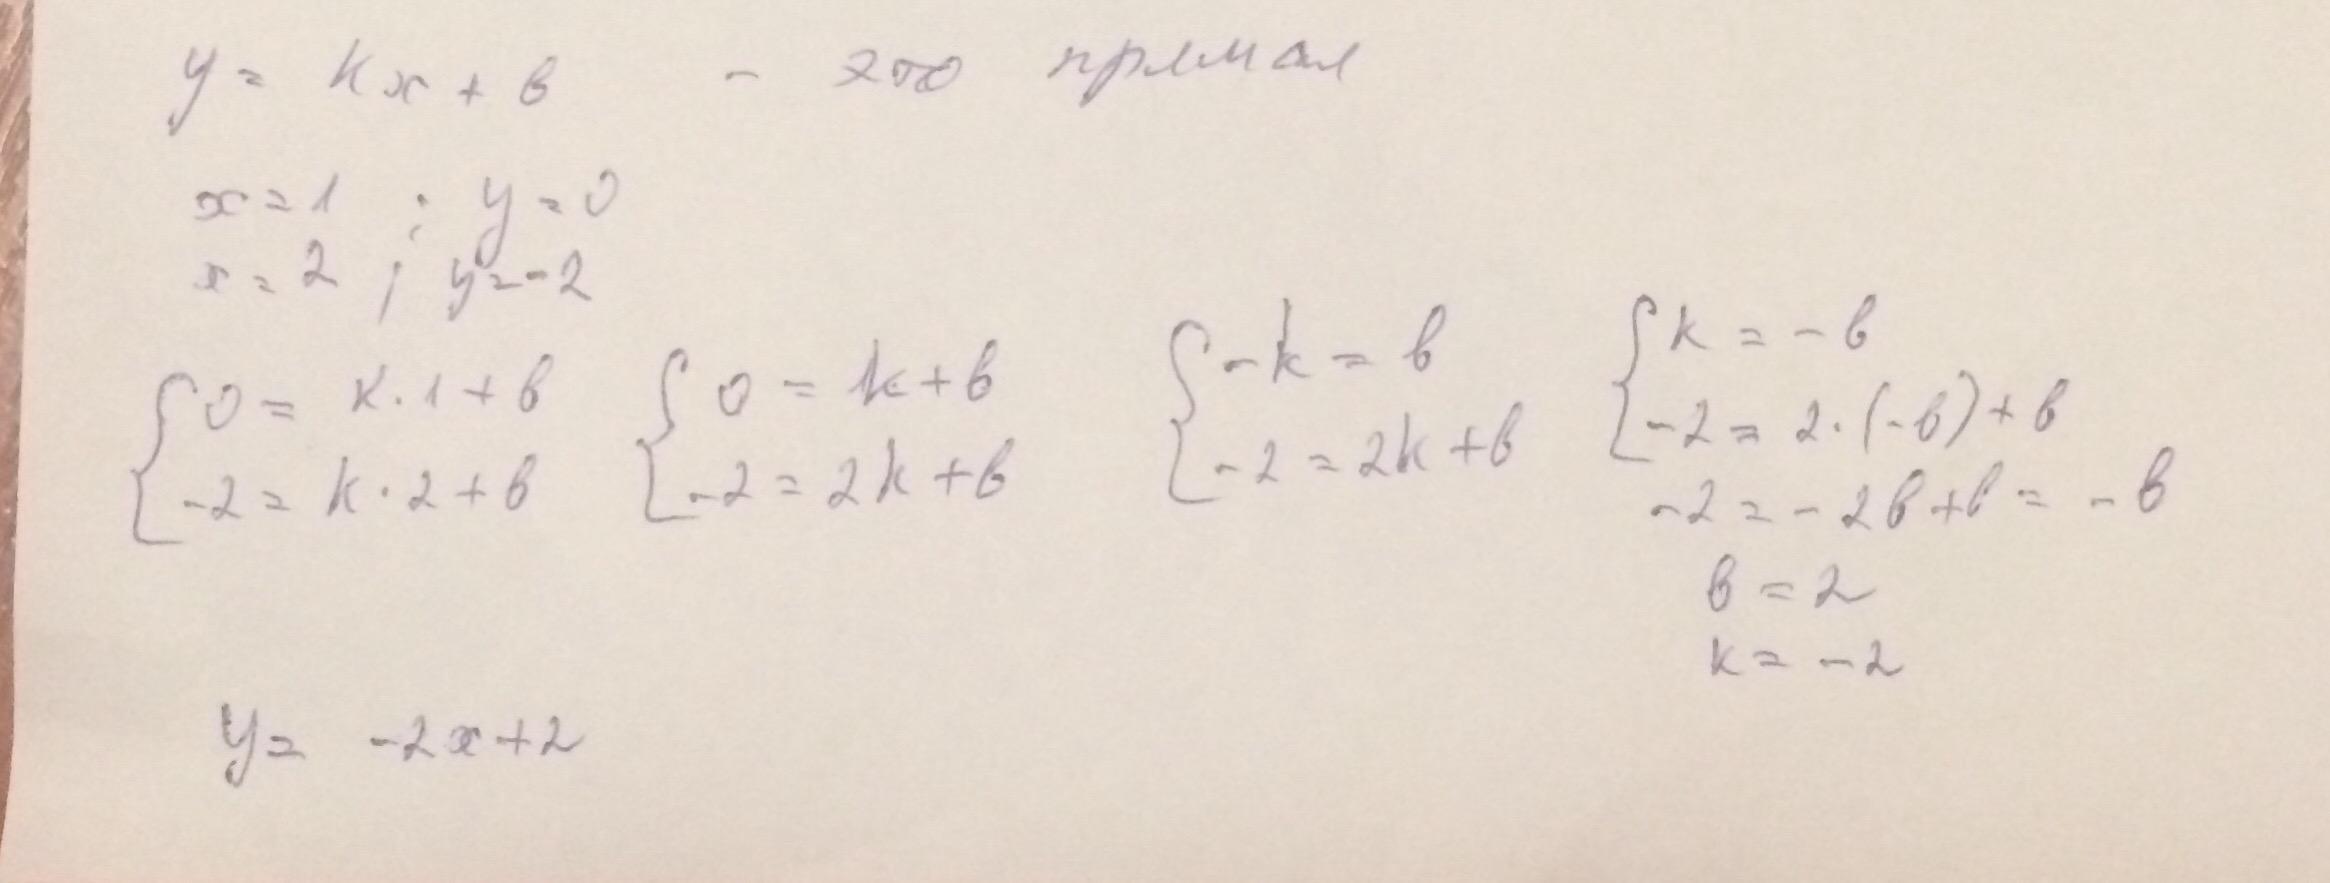 y = kx + b - это прямая
x = 1 ; y = 0
x = 2 ; y = -2
{ 0 = k · 1 + b { 0 = k + b { -k = b { k = -b
-2 = k · 2 + b -2 = 2k + b -2 = 2k + b -2 = 2 · (-b) + b
-2 = -2b + b = -b
b = 2
k = -2
y = -2x + 2